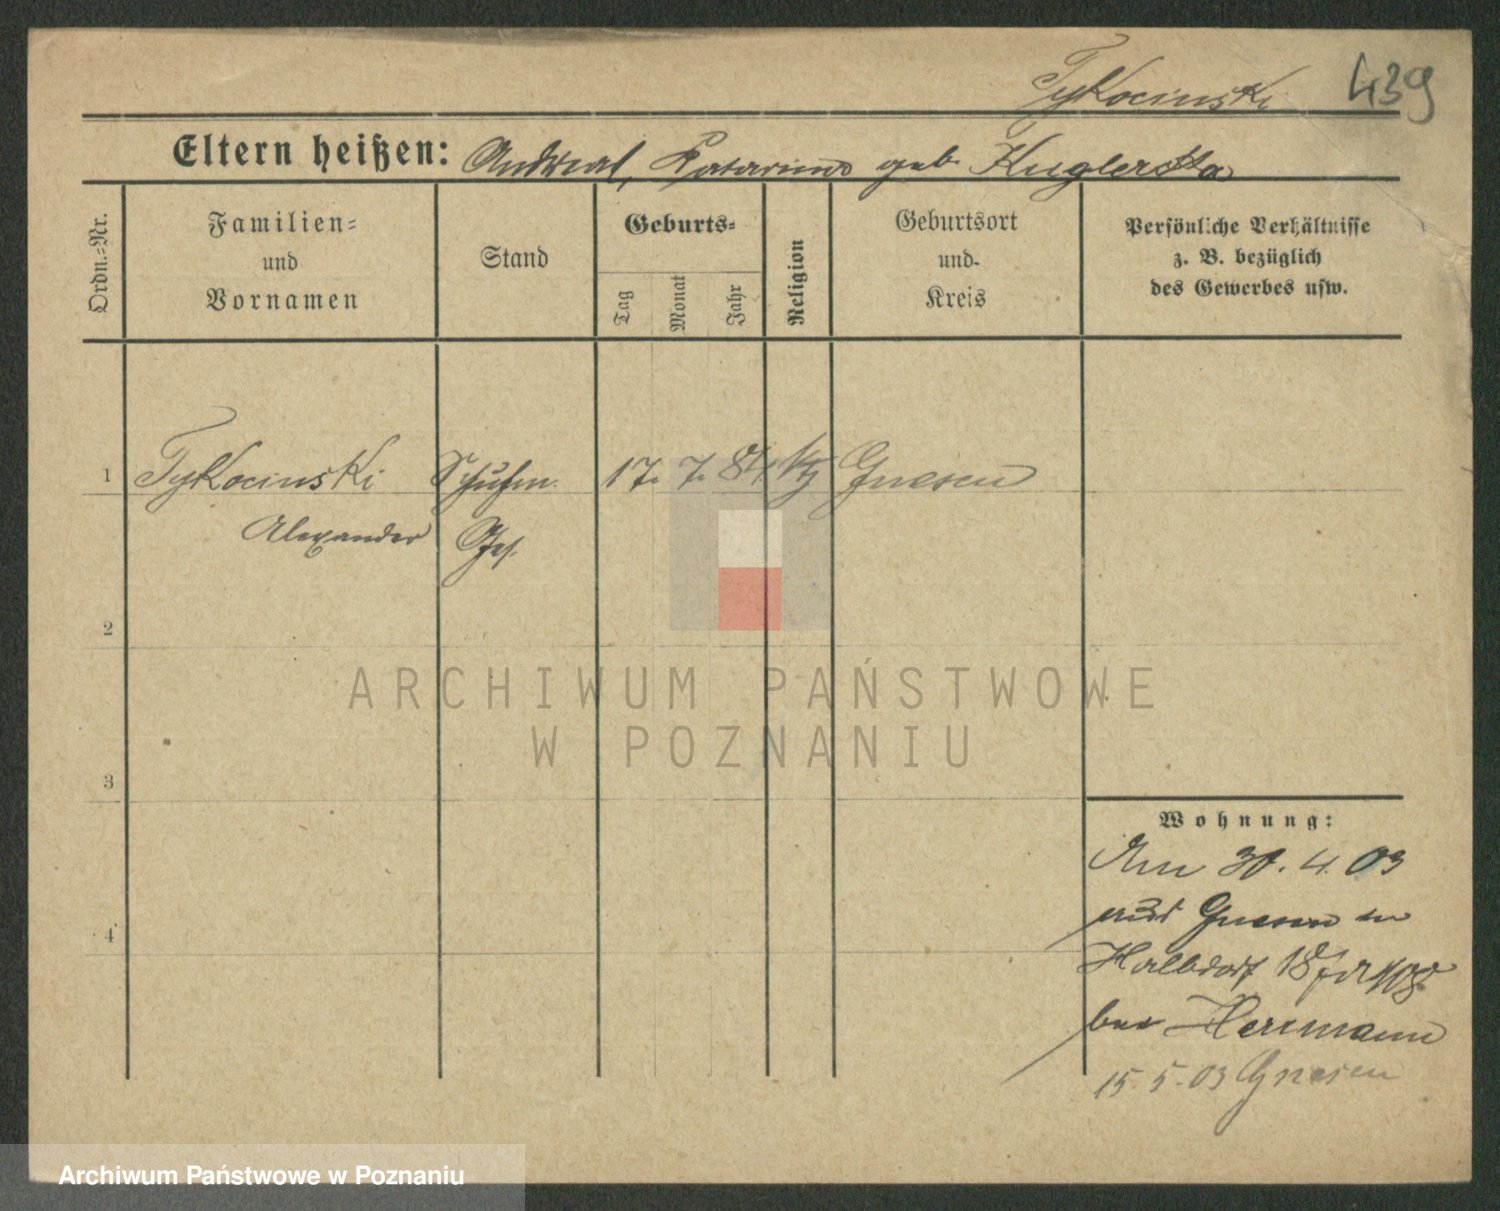 Tykocinski 439
Eltern heißen: Andreas, Katarina geb. Kuglerska
Ordn.-Nr.
Familien-
und
Vornamen
Stand
Geburts-
Tag
Monat
Jahr
Religion
Geburtsort
und
Kreis
Persönliche Verhältnisse
z. B. bezüglich
des Gewerbes usw.
1 Tykocinski Schuhm. 17. 7. 84 Gnesen
Alexander Ges.
2
ARCHIWUM PAŃSTWOWE
W POZNANIU
3
Wohnung:
Am 30. 4. 03
aus Gnesen in
4
Halbdorf 18
bei Herrmann
15. 5. 03 Gnesen
Archiwum Państwowe w Poznaniu